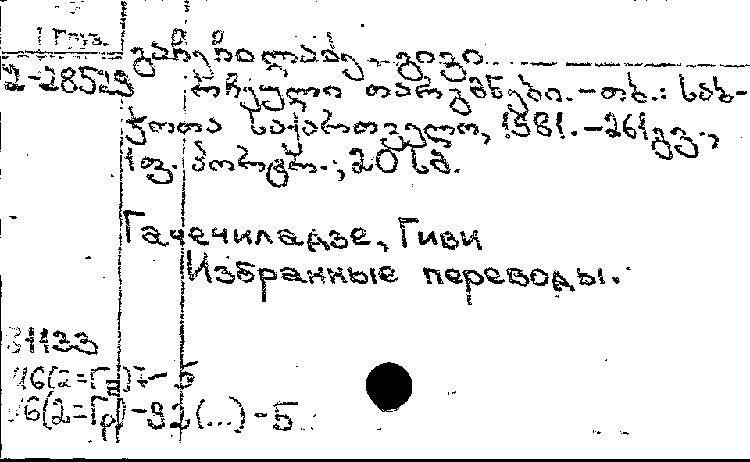 1 Груз.
გაჩეჩილაძე, გივი.
2-28529 რჩეული თარგმნები. - თბ.: საბ-
ჭოთა საქართველო, 1981. - 261 გვ.,
1 ფ. პორტრ.; 20 სმ.
Гачечиладзе, Гиви
Избранные переводы.
31133
И6(2=Гр)7-5
И6(2=Гр)-92(...)-5